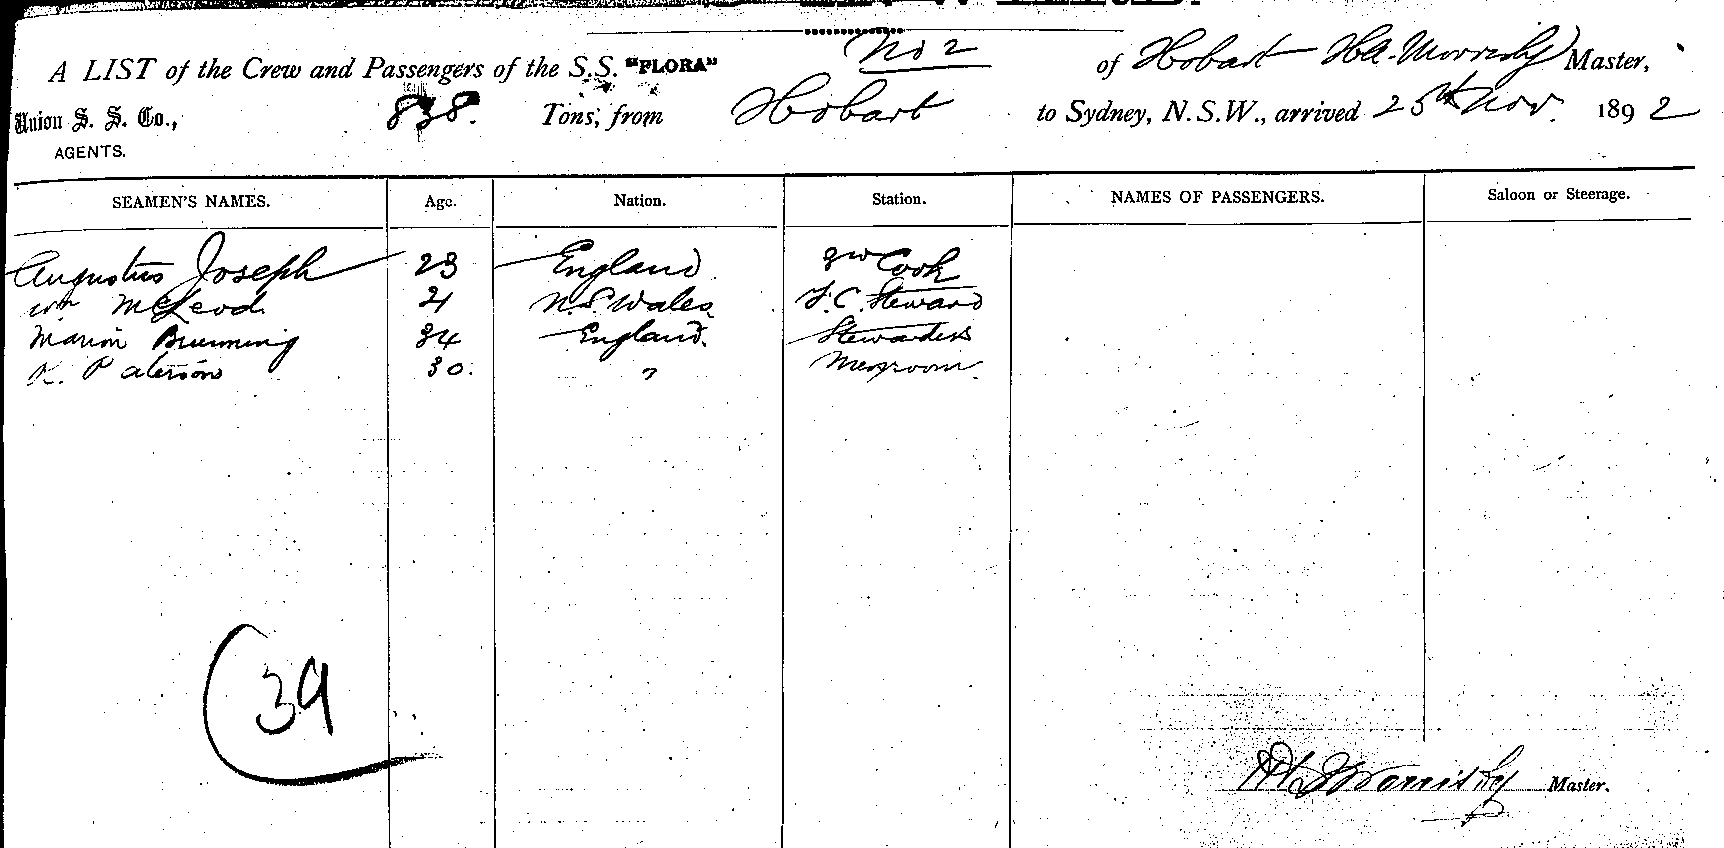 No 2
A LIST of the Crew and Passengers of the S.S. "FLORA" of Hobart Hd. Morrisby Master,
Union S. S. Co., 838. Tons, from Hobart to Sydney, N.S.W., arrived 25th Nov. 1892
AGENTS.
SEAMEN'S NAMES. Age. Nation. Station. NAMES OF PASSENGERS. Saloon or Steerage.
Augustus Joseph 23 England Cook
Wm McLeod 21 N.S. Wales F.C. Steward
Marion Brunning 34 England. Stewardess
K. Paterson 30. " Messroom
39
Morrisby Master.